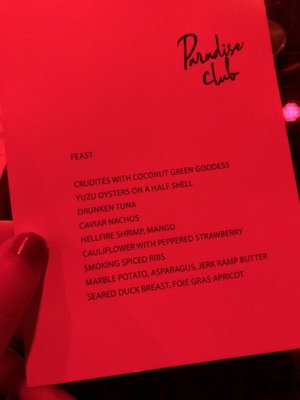 Paradise
Club
FEAST
CRUDITÉS WITH COCONUT GREEN GODDESS
YUZU OYSTERS ON A HALF SHELL
DRUNKEN TUNA
CAVIAR NACHOS
HELLFIRE SHRIMP, MANGO
CAULIFLOWER WITH PEPPERED STRAWBERRY
SMOKING SPICED RIBS
MARBLE POTATO, ASPARAGUS, JERK RAMP BUTTER
SEARED DUCK BREAST, FOIE GRAS APRICOT